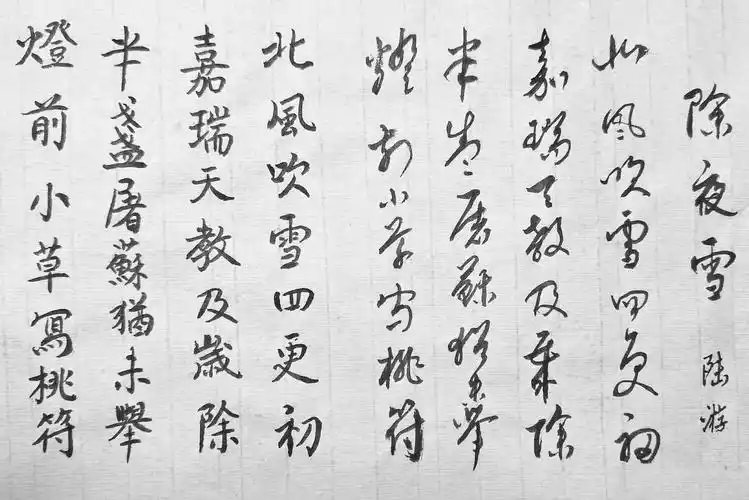 除夜雪
陸游
北風吹雪四更初
嘉瑞天教及歲除
半盞屠蘇猶未舉
燈前小草寫桃符
北風吹雪四更初
嘉瑞天教及歲除
半盞屠蘇猶未舉
燈前小草寫桃符